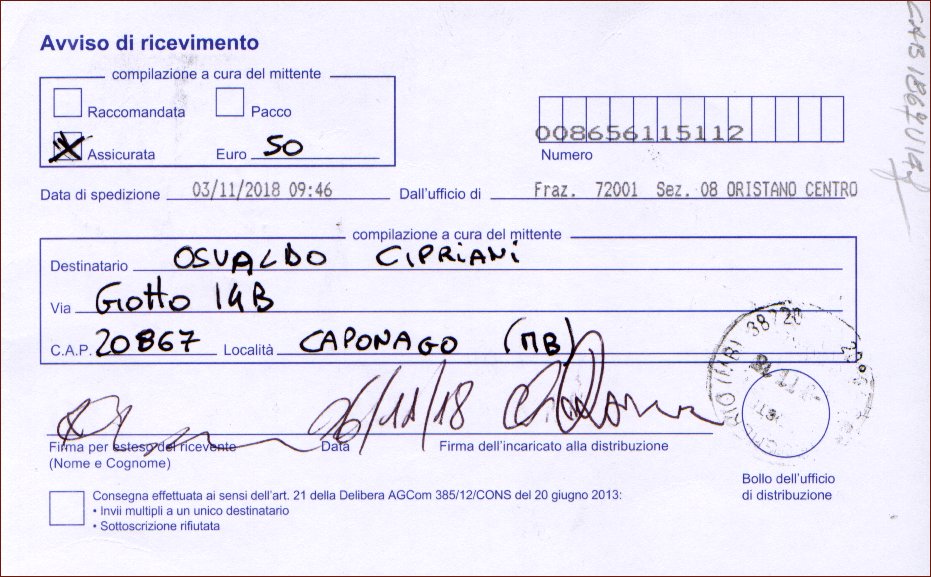 Avviso di ricevimento
compilazione a cura del mittente
Raccomandata Pacco
Assicurata Euro 50
008656115112
Numero
Data di spedizione 03/11/2018 09:46 Dall'ufficio di Fraz. 72001 Sez. 08 ORISTANO CENTRO
compilazione a cura del mittente
Destinatario OSVALDO CIPRIANI
Via GIOTTO 14B
C.A.P. 20867 Località CAPONAGO (MB)
26/11/18
Firma per esteso del ricevente Data Firma dell'incaricato alla distribuzione
(Nome e Cognome)
Bollo dell'ufficio
di distribuzione
Consegna effettuata ai sensi dell'art. 21 della Delibera AGCom 385/12/CONS del 20 giugno 2013:
• Invii multipli a un unico destinatario
• Sottoscrizione rifiutata